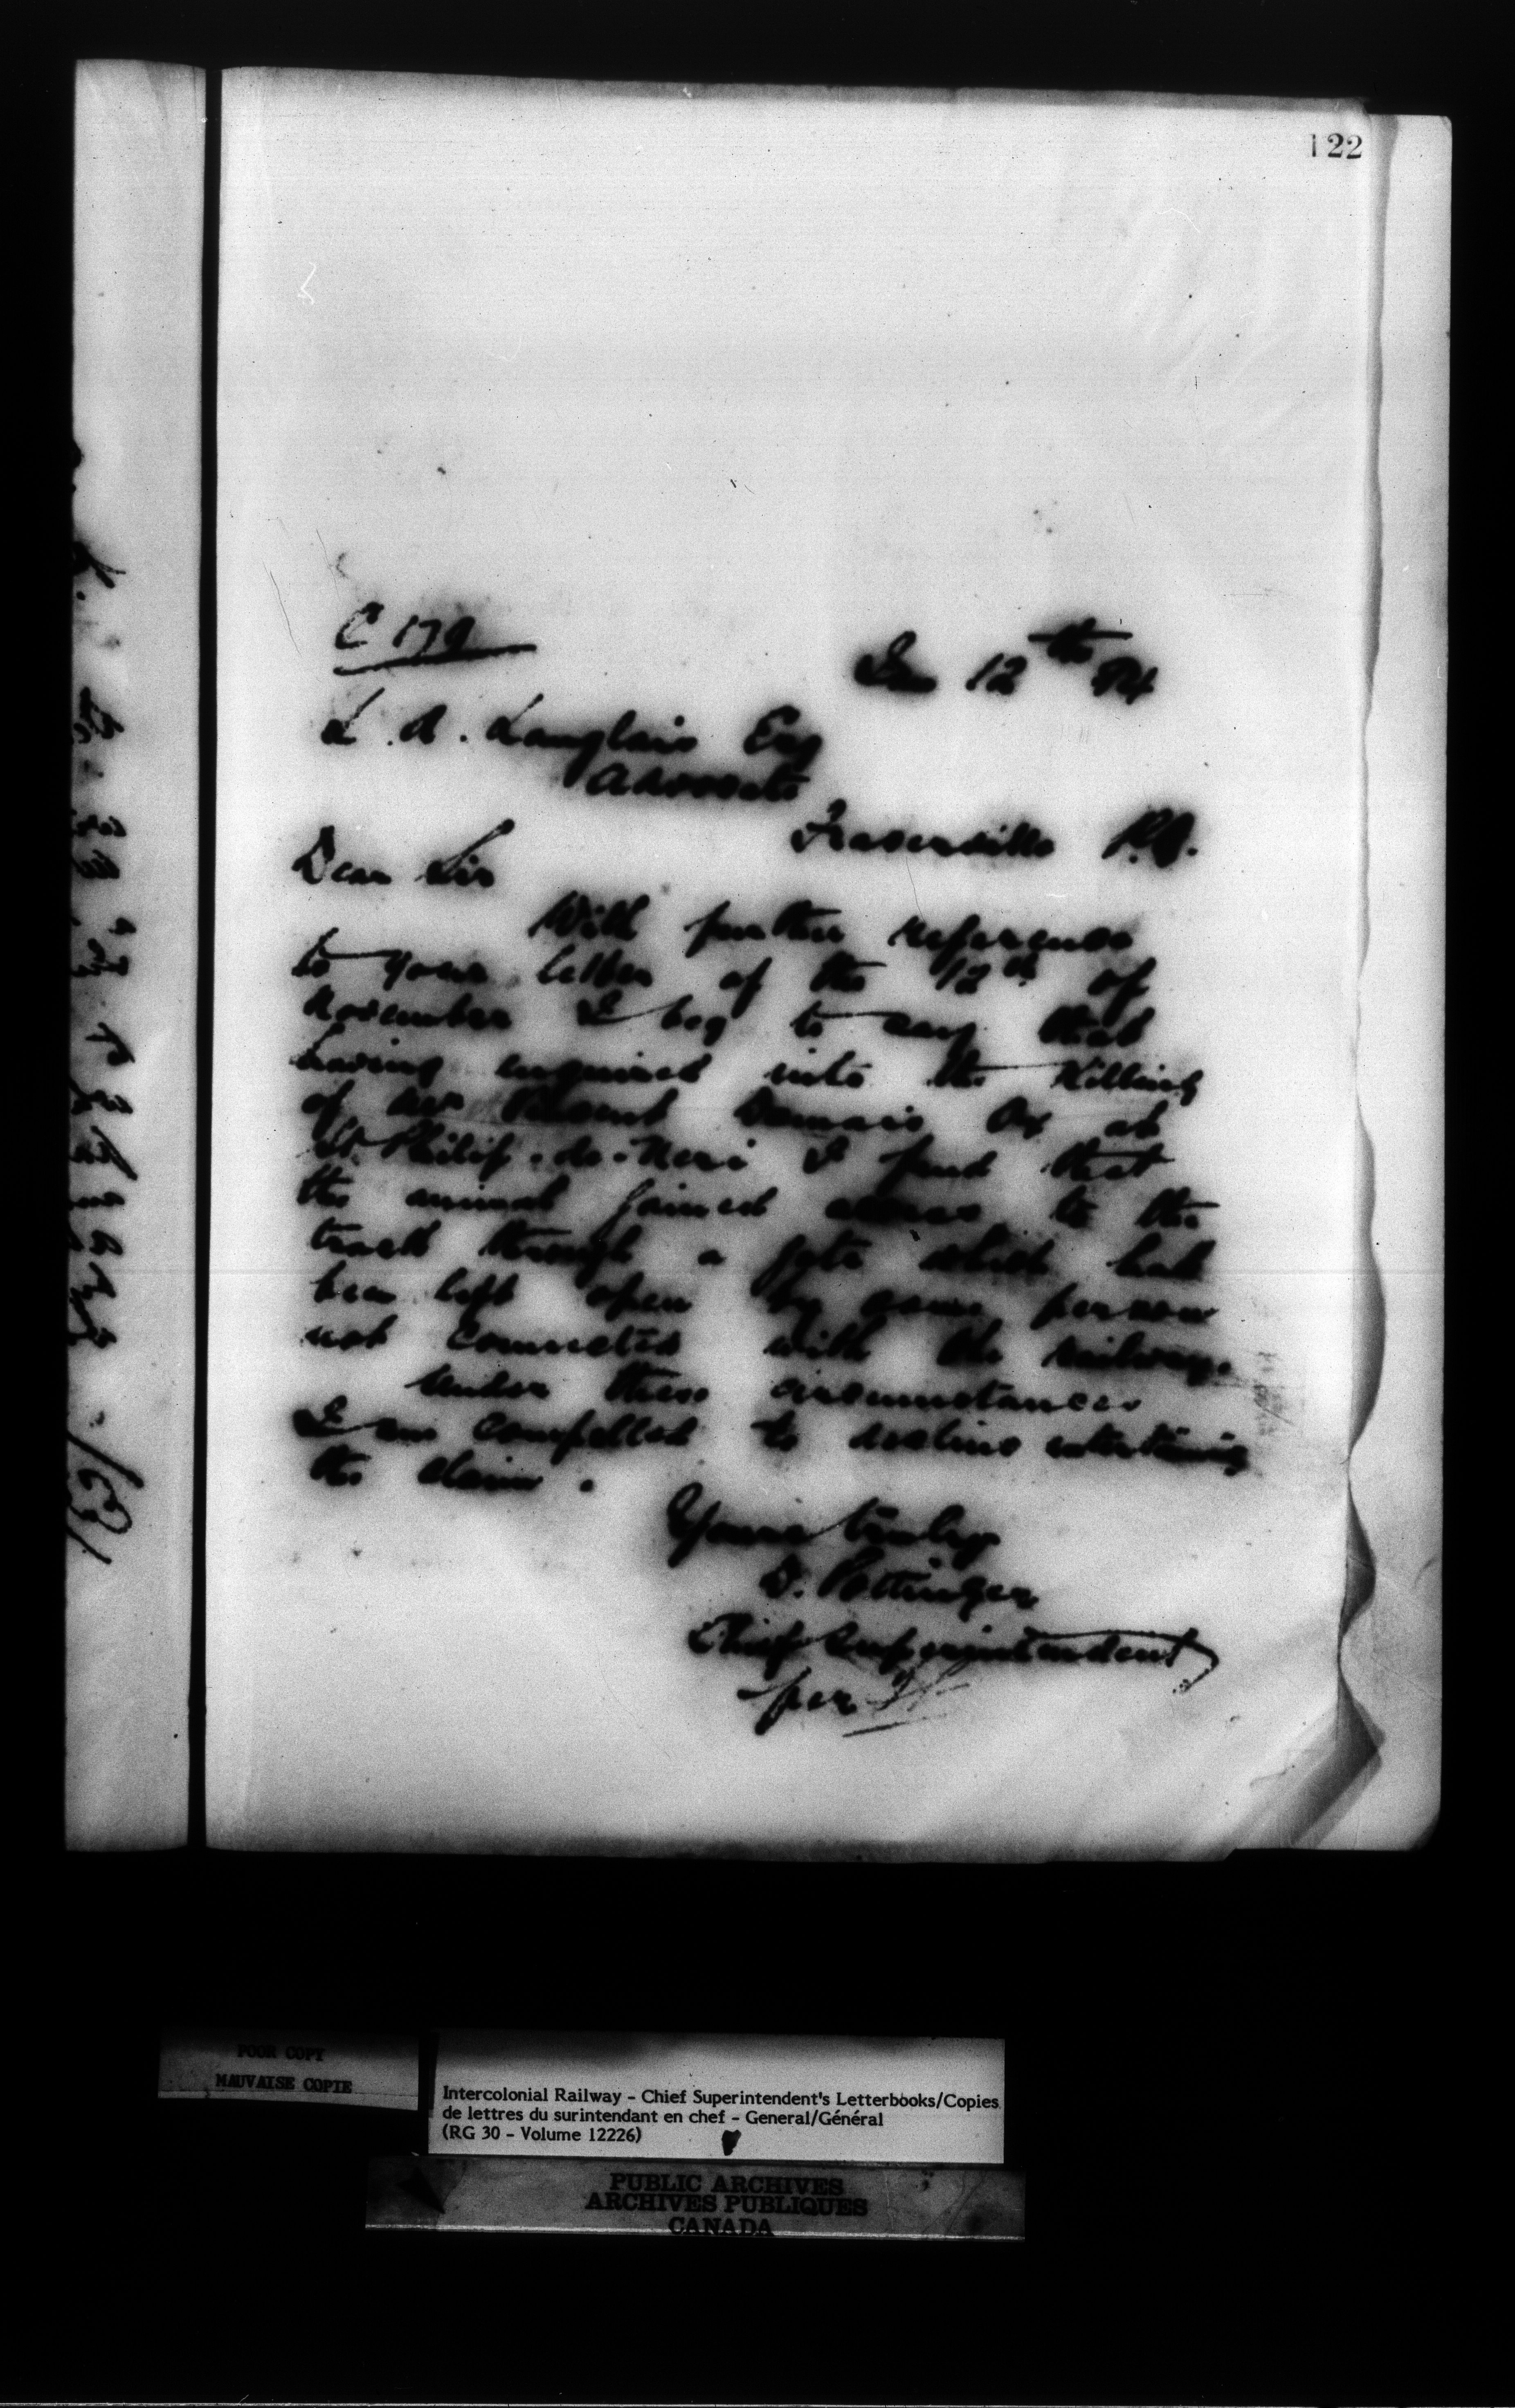 122
C 179
Jan 12th 84
L. A. Langlais Esq
Advocate
Fraserville P.Q.
Dear Sir
With further reference
to your letter of the 12th of
November I beg to say that
having enquired into the killing
of Mr Damais Ox at
St. Philip-de-Neri I find that
the animal gained access to the
track through a gate which had
been left open by some person
not connected with the railway.
Under these circumstances
I am compelled to decline entertaining
the claim.
Yours truly
D. Pottinger
Chief Superintendent
per
POOR COPY
MAUVAISE COPIE
Intercolonial Railway - Chief Superintendent's Letterbooks/Copies
de lettres du surintendant en chef - General/Général
(RG 30 - Volume 12226)
PUBLIC ARCHIVES
ARCHIVES PUBLIQUES
CANADA